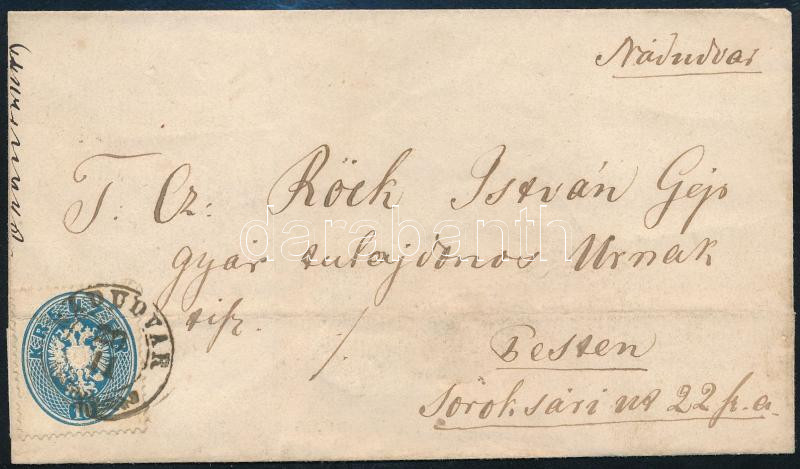 Nádudvar
T. Cz: Röck István Gép
gyár tulajdonos Urnak
tisz.
Pesten
Soroksári ut 22 k.a.
darabanth
K.R.S.
UDUDVAR
10